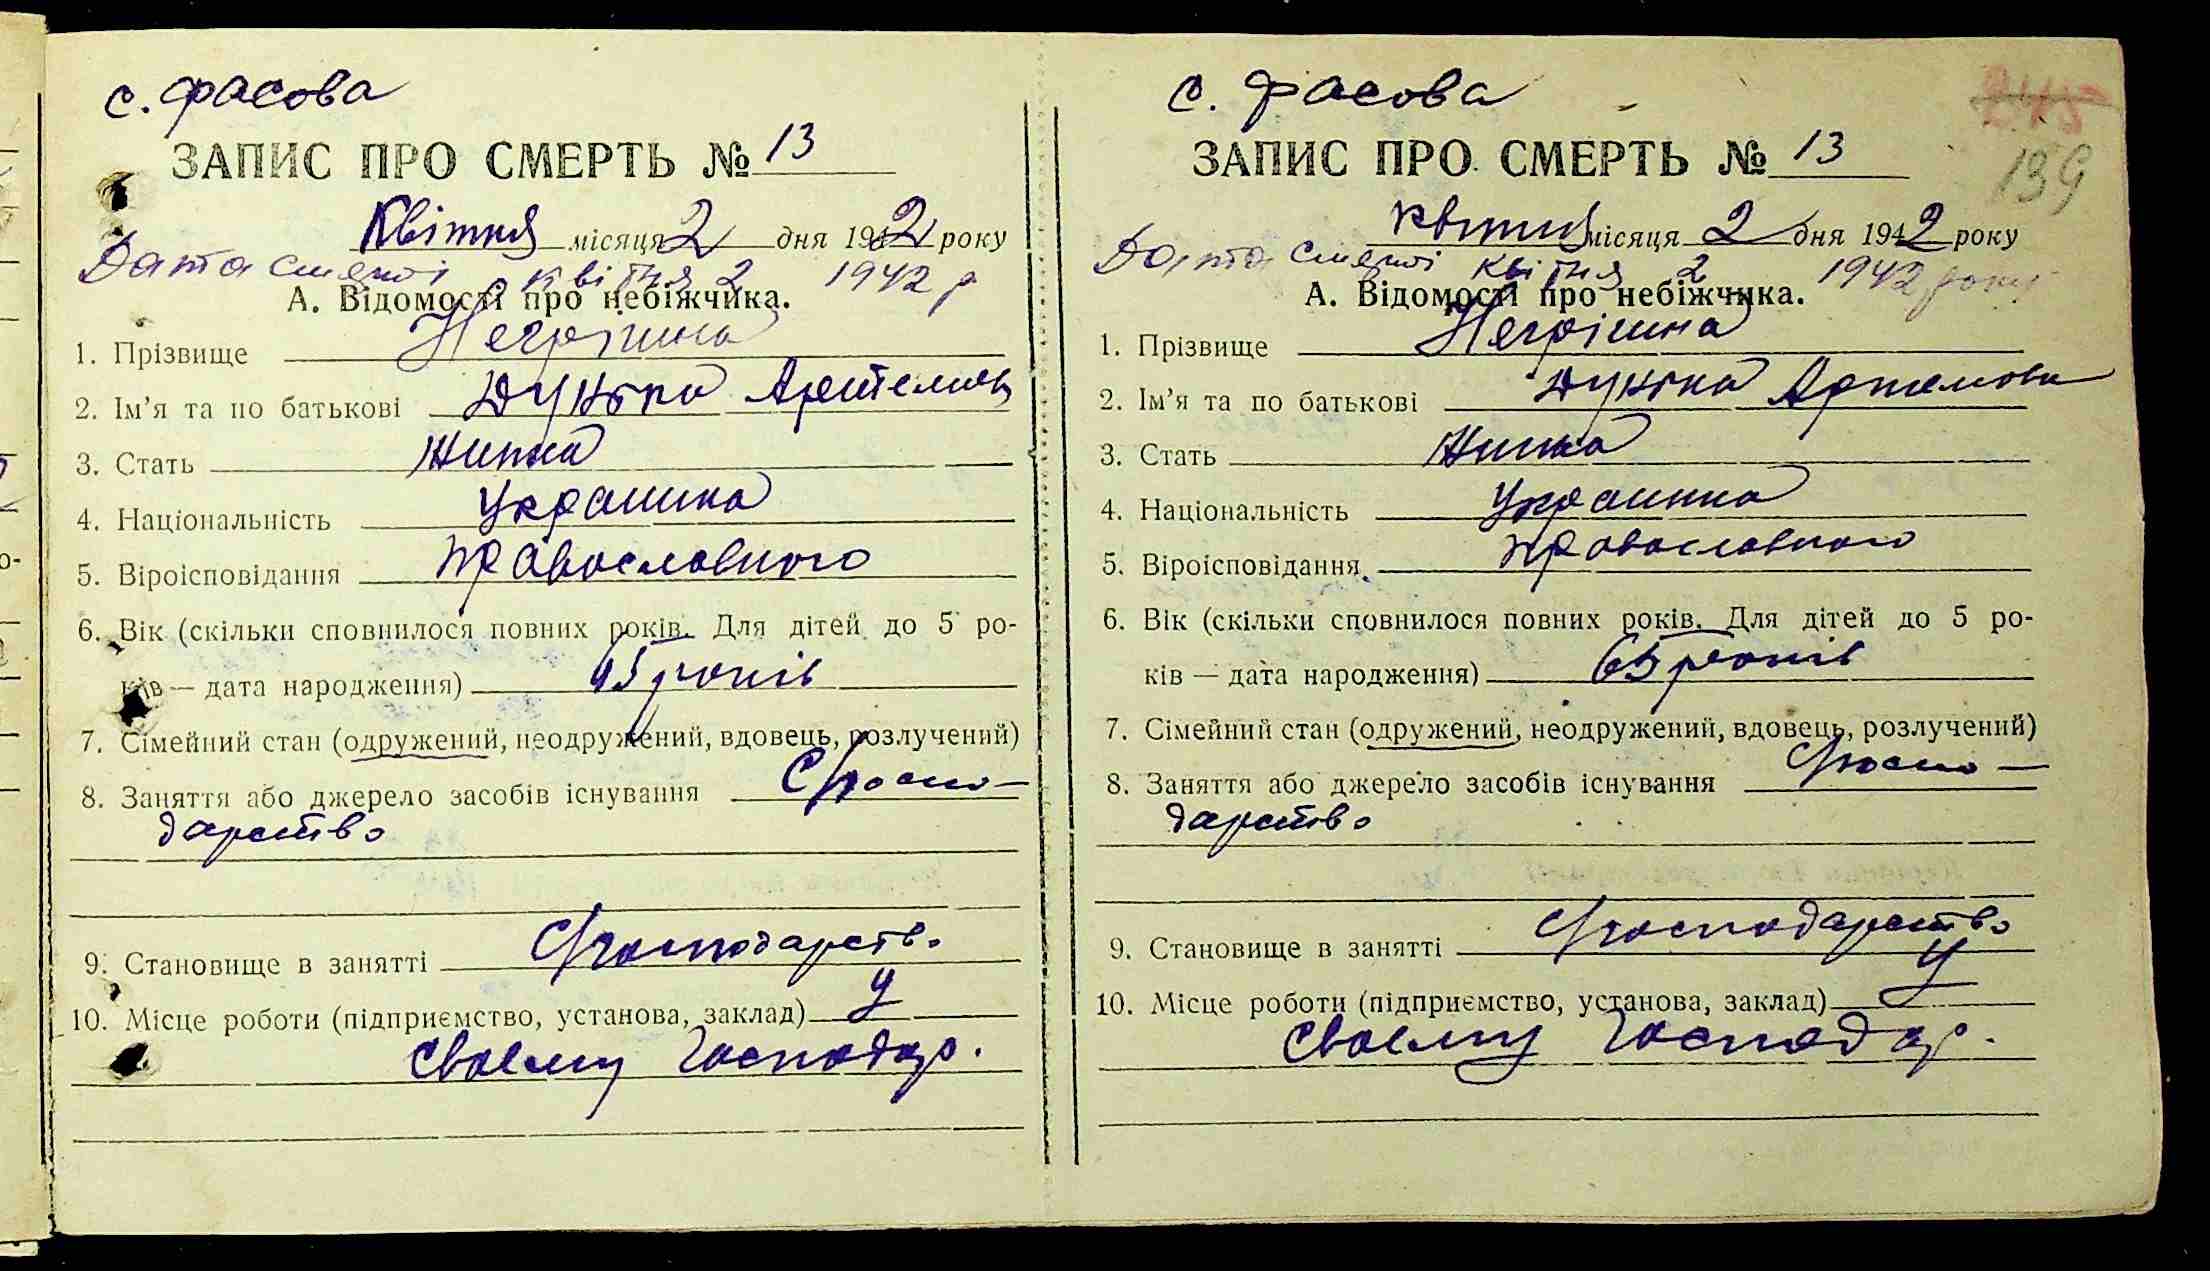 с. Фасова
ЗАПИС ПРО СМЕРТЬ № 13
Квітня місяця 2 дня 1942 року
Дата смерті квітня 2 1942 р
А. Відомості про небіжчика.
1. Прізвище
2. Ім’я та по батькові Дунька
3. Стать жинка
4. Національність Украинка
5. Віроісповідання православного
6. Вік (скільки сповнилося повних років. Для дітей до 5 ро-
ків — дата народження) років
7. Сімейний стан (одружений, неодружений, вдовець, розлучений)
8. Заняття або джерело засобів існування Госпо-
дарство
9. Становище в занятті Господарство
10. Місце роботи (підприємство, установа, заклад) У
своєму господар.
с. Фасова
139
ЗАПИС ПРО СМЕРТЬ № 13
Квітня місяця 2 дня 1942 року
Дата смерті квітня 2 1942 року
А. Відомості про небіжчика.
1. Прізвище
2. Ім’я та по батькові Дунька Артемова
3. Стать жинка
4. Національність Украинка
5. Віроісповідання православного
6. Вік (скільки сповнилося повних років. Для дітей до 5 ро-
ків — дата народження) 65 років
7. Сімейний стан (одружений, неодружений, вдовець, розлучений)
8. Заняття або джерело засобів існування Госпо-
дарство
9. Становище в занятті Господарство
10. Місце роботи (підприємство, установа, заклад) У
своєму господар.